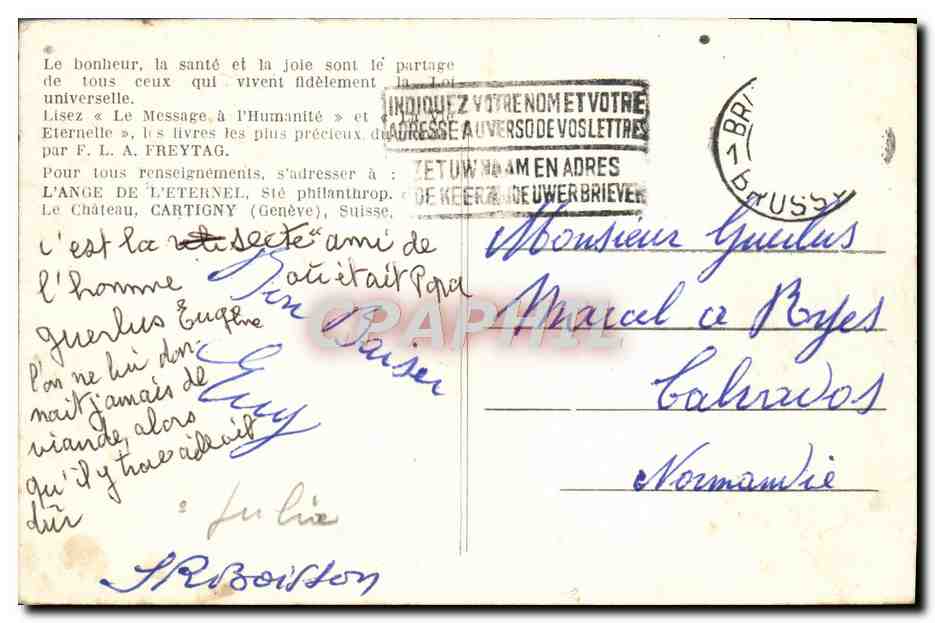 Le bonheur, la santé et la joie sont le partage
de tous ceux qui vivent fidèlement la Loi
universelle.
Lisez « Le Message à l'Humanité » et « La Vie
Eternelle », les livres les plus précieux du
par F. L. A. FREYTAG.
Pour tous renseignéments, s'adresser à :
L'ANGE DE L'ETERNEL, Sté philanthrop.
Le Château, CARTIGNY (Genève), Suisse.
INDIQUEZ VOTRE NOM ET VOTRE
ADRESSE AU VERSO DE VOS LETTRES
ZET UW NAAM EN ADRES
DE KEERZIJDE UWER BRIEVEN
1
BRUSS
c'est la secte "ami de
l'homme où était Papa
Guerlus Eugène
l'on ne lui don-
nait jamais de
viande, alors
qu'il y travaillait
dûr
Bon Baiser
Guy
Julia
S R Boisson
Monsieur Guerlus
Marcel a Ryes
Calvados
Normandie
CPAPHIL